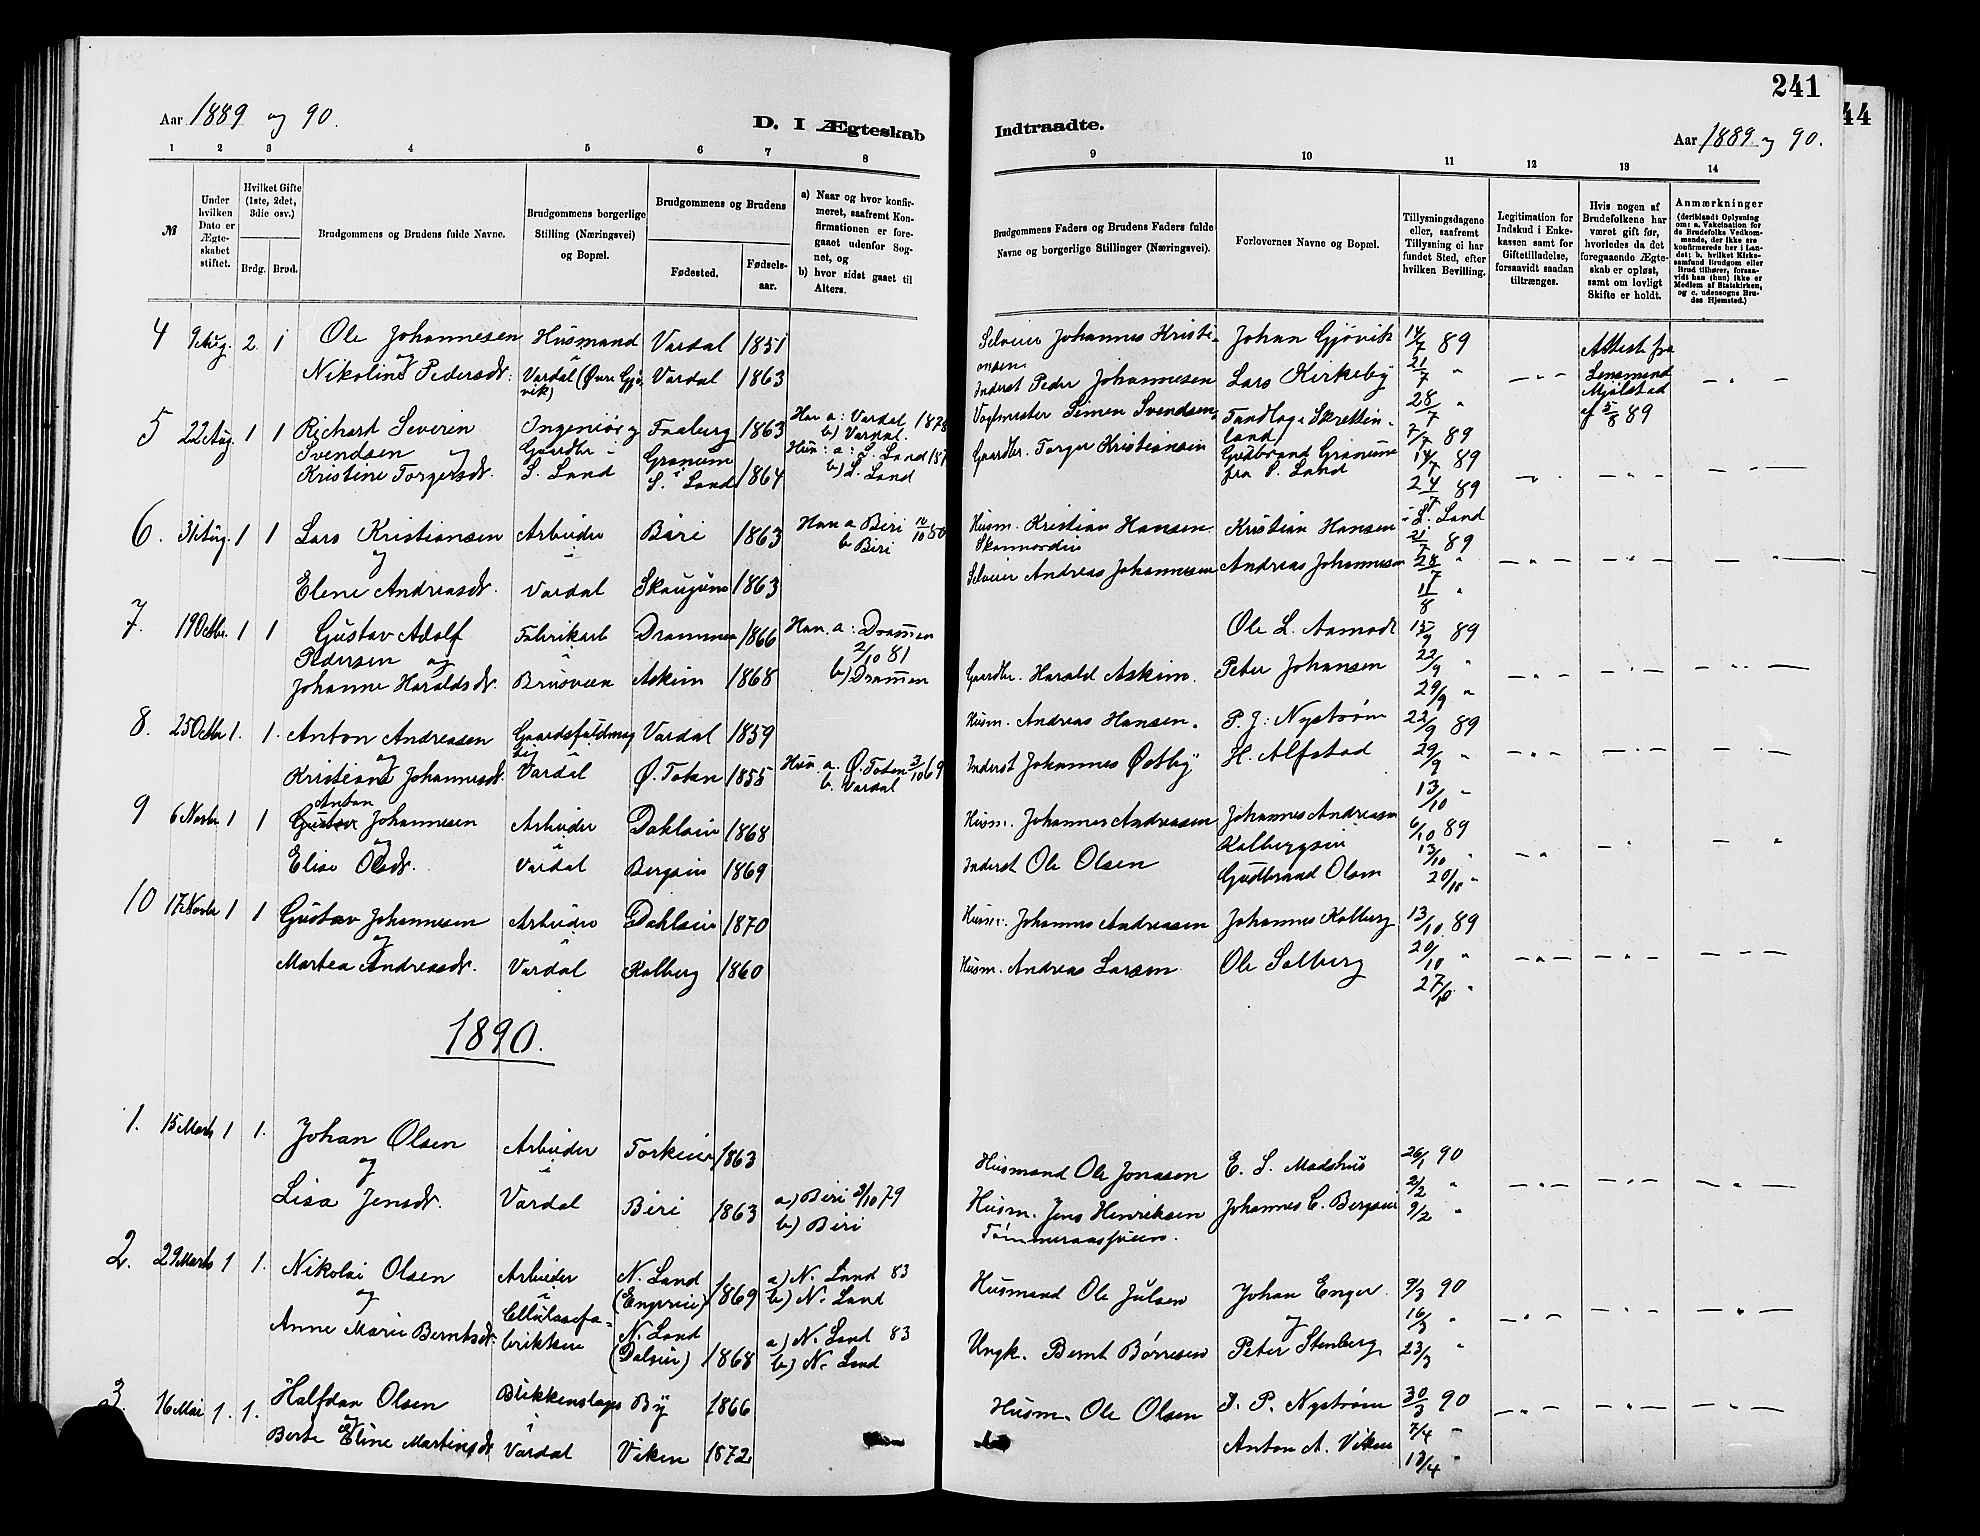 241
44
Aar 1889 og 90.
D. I Ægteskab
Indtraadte.
Aar 1889 og 90.
1 2 3 4 5 6 7 8
9 10 11 12 13 14
№
Under hvilken Dato er Ægteskabet stiftet.
Hvilket Gifte (1ste, 2det, 3die osv.)
Brdg. Brud.
Brudgommens og Brudens fulde Navne.
Brudgommens borgerlige Stilling (Næringsvei) og Bopæl.
Brudgommens og Brudens
Fødested.
Fødselsaar.
a) Naar og hvor konfirmeret, saafremt Konfirmationen er foregaaet udenfor Sognet, og
b) hvor sidst gaaet til Alters.
Brudgommens Faders og Brudens Faders fulde Navne og borgerlige Stillinger (Næringsvei).
Forlovernes Navne og Bopæl.
Tillysningsdagene eller, saafremt Tillysning ei har fundet Sted, efter hvilken Bevilling.
Legitimation for Indskud i Enkekassen samt for Giftetilladelse, forsaavidt saadan tiltrænges.
Hvis nogen af Brudefolkene har været gift før, hvorledes da det foregaaende Ægteskab er opløst, samt om lovligt Skifte er holdt.
Anmærkninger (deriblandt Oplysning om: a. Vakcination for de Brudefolks Vedkommende, der ikke ere konfirmerede her i Landet; b. hvilket Kirkesamfund Brudgom eller Brud tilhører, forsaavidt han (hun) ikke er Medlem af Statskirken, og c. udensogns Brudes Hjemsted.)
4 9 Aug. 2. 1 Ole Johannesen Husmand Vardal 1851
og i
Nikoline Pedersdt. Vardal (Øvre Gjøvik) Vardal 1863
Selveier Johannes Kristiansen Johan Gjøvik 14/7 89
Inderst Peder Johannesen Lars Kirkeby 21/7 "
28/7 "
Attest fra Lensmand Mjølstad af 5/8 89
5 22 Aug. 1 1 Richard Severin Svendsen Ingeniør og Faaberg 1863 Han a: Vardal 1878
b) Vardal.
og Gaardbr. Granum
Kristine Torgersdt. S. Land S. Land 1864 Hun: a: S. Land
b) S. Land
Vogtmester Simen Svendsen Tandlæge Skretteland 7/7 89
Gaardbr. Torger Kristiansen Gudbrand Granum fra S. Land 14/7 89
24/7 89
i S. Land
6. 31 Aug. 1 1 Lars Kristiansen Arbeider Biri 1863 Han a Biri
b Biri
og i
Elene Andreasdt. Vardal 1863
Husm. Kristian Hansen Kristian Hansen 21/7 89
Selveier Andreas Johannesen Andreas Johannesen 28/7 "
11/8 "
7. 19 Octbr. 1 1 Gustav Adolf Pedersen Fabrikarb. Drammen 1866 Han. a: Drammen 2/10 81
b) Drammen
og
Johanne Haraldsdt. Brusveen Askim 1868
Ole L. Aamodt 15/9 89
Gaardbr. Harald Askim. Peter Johansen 22/9 "
29/9 "
8. 25 Octbr 1. 1. Anton Andreasen Vardal 1859
og
Kristiane Johannesdt. Vardal Ø. Toten 1855 Hun. a. Ø. Toten 3/10 69
b. Vardal
Husm. Andreas Hansen. P. J. Nystrøm 22/9 89
Inderst Johannes Østby H. Alfstad 29/9 "
13/10 "
9 6 Novbr 1 1 Anton
Gustav Johannesen Arbeider Dahlseie 1868
og i
Elise Olsdt. Vardal Bergseie 1869
Husm. Johannes Andreasen Johannes Andreasen Kalbergseie 6/10 89
Inderst Ole Olsen Gudbrand Olsen 13/10 "
20/10 "
10 17 Novbr 1 1 Gustav Johannesen Arbeider Dahlseie 1870
og i
Martea Andreasdt. Vardal Kalberg 1860
Husm. Johannes Andreasen Johannes Kalberg 13/10 89
Husm. Andreas Larsen Ole Solberg 20/10 "
27/10 "
1890.
1. 15 Marts 1 1. Johan Olsen Arbeider 1863
og i
Lisa Jensdt. Vardal Biri 1863 a) Biri 3/10 79
b) Biri
Husmand Ole Jonasen E. L. Madshus 26/1 90
Husm. Jens Henriksen Johannes C. Bergseie 2/2 "
9/2 "
2. 29 Marts 1 1. Nikolai Olsen Arbeider N. Land (Engereie) 1869 a) N. Land 83
b) N. Land
og i
Anne Marie Berntsdt. Cellulosefabrikken N. Land (Dalseie) 1868 a) N. Land 83
b) N. Land
Husmand Ole Julsen Johan Enger 9/3 90
og 16/3 "
Ungk. Bernt Børresen Peter Stenberg 23/3 "
3. 16 Mai 1. 1. Halfdan Olsen Blikkenslager By 1866
og i
Berte Eline Martinsdt. Vardal Viken 1872
Husm. Ole Olsen P. Nystrøm 30/3 90
Anton A. Viken 7/4 "
13/4 "